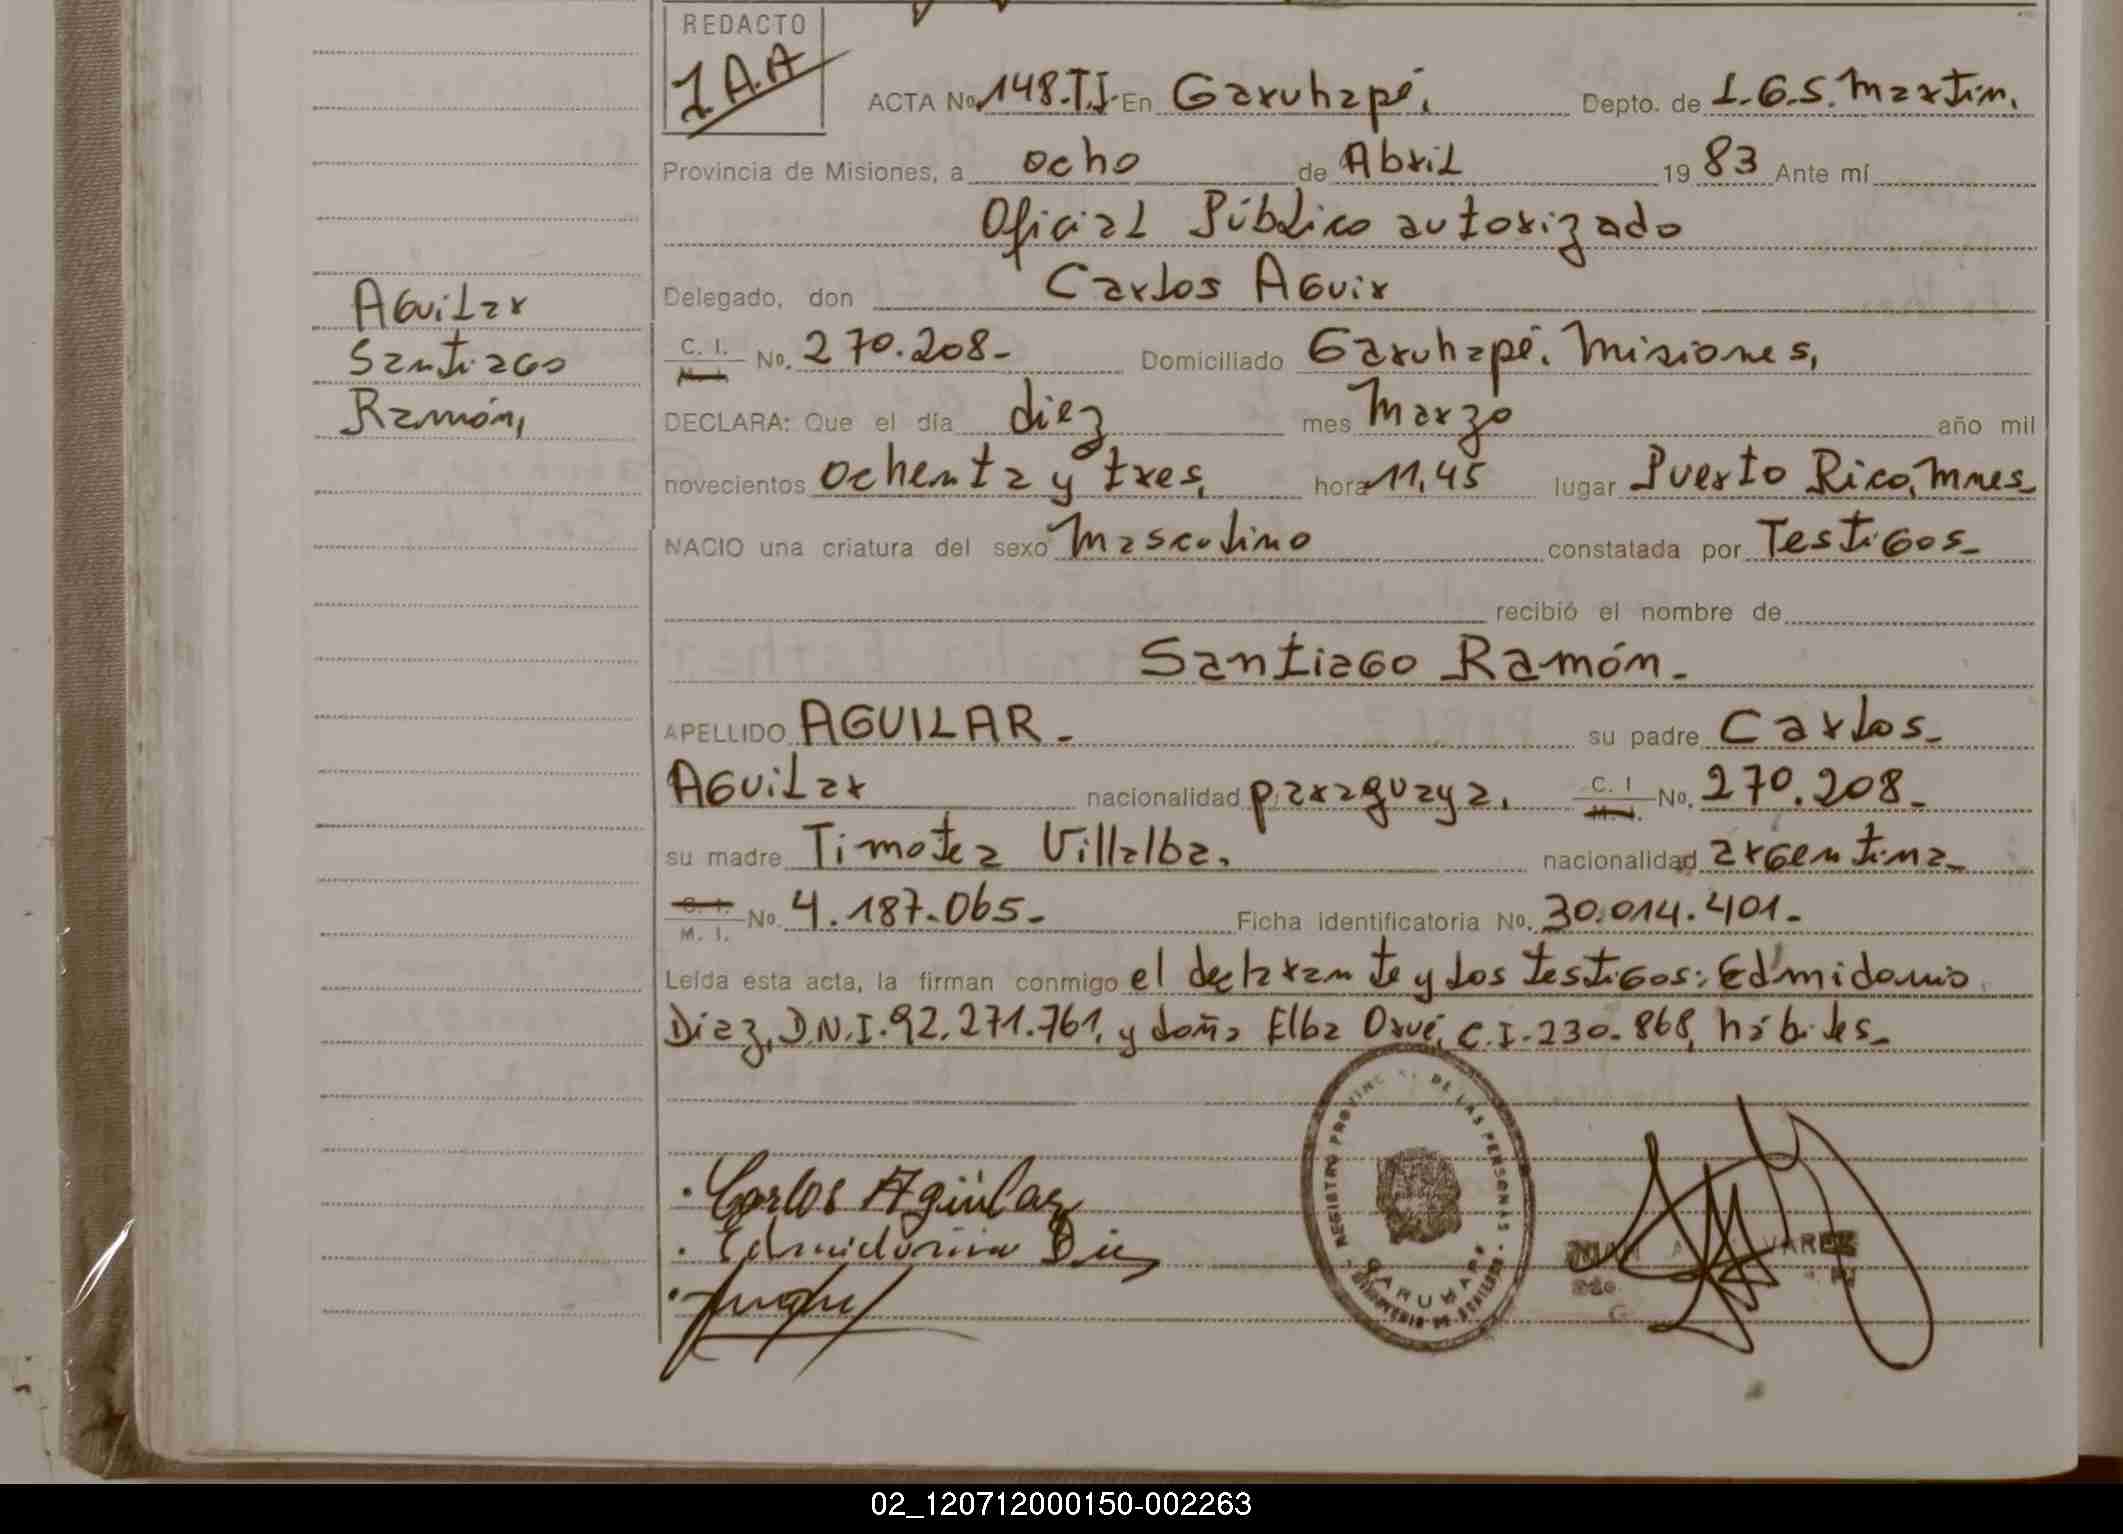 REDACTO
J A.A
ACTA No. 148.T.I. En Garuhapé, Depto. de L.G.S. Martín,
Provincia de Misiones, a ocho de Abril 1983 Ante mí
Oficial Público autorizado
Delegado, don Carlos Aguir
C. I. No. 270.208- Domiciliado Garuhapé. Misiones,
M. I.
DECLARA: Que el día diez mes Marzo año mil
novecientos ochenta y tres, hora 11,45 lugar Puerto Rico, Mnes-
NACIO una criatura del sexo Masculino constatada por Testigos-
recibió el nombre de
Santiago Ramón.-
APELLIDO AGUILAR.- su padre Carlos-
Aguilar nacionalidad paraguaya, C. I No. 270.208-
M. I.
su madre Timotea Villalba, nacionalidad argentina-
C. I. No. 4.187.065- Ficha identificatoria No. 30.014.401-
M. I.
Leída esta acta, la firman conmigo el declarante y los testigos: Edmidonio
Diaz, D.N.I. 92.271.761, y doña Elba Orué, C.I. 230.868, hábiles-
Aguilar
Santiago
Ramón,
Carlos Agüilar
REGISTRO PROVINC DE LAS PERSONAS
GARUHAPE
02_120712000150-002263